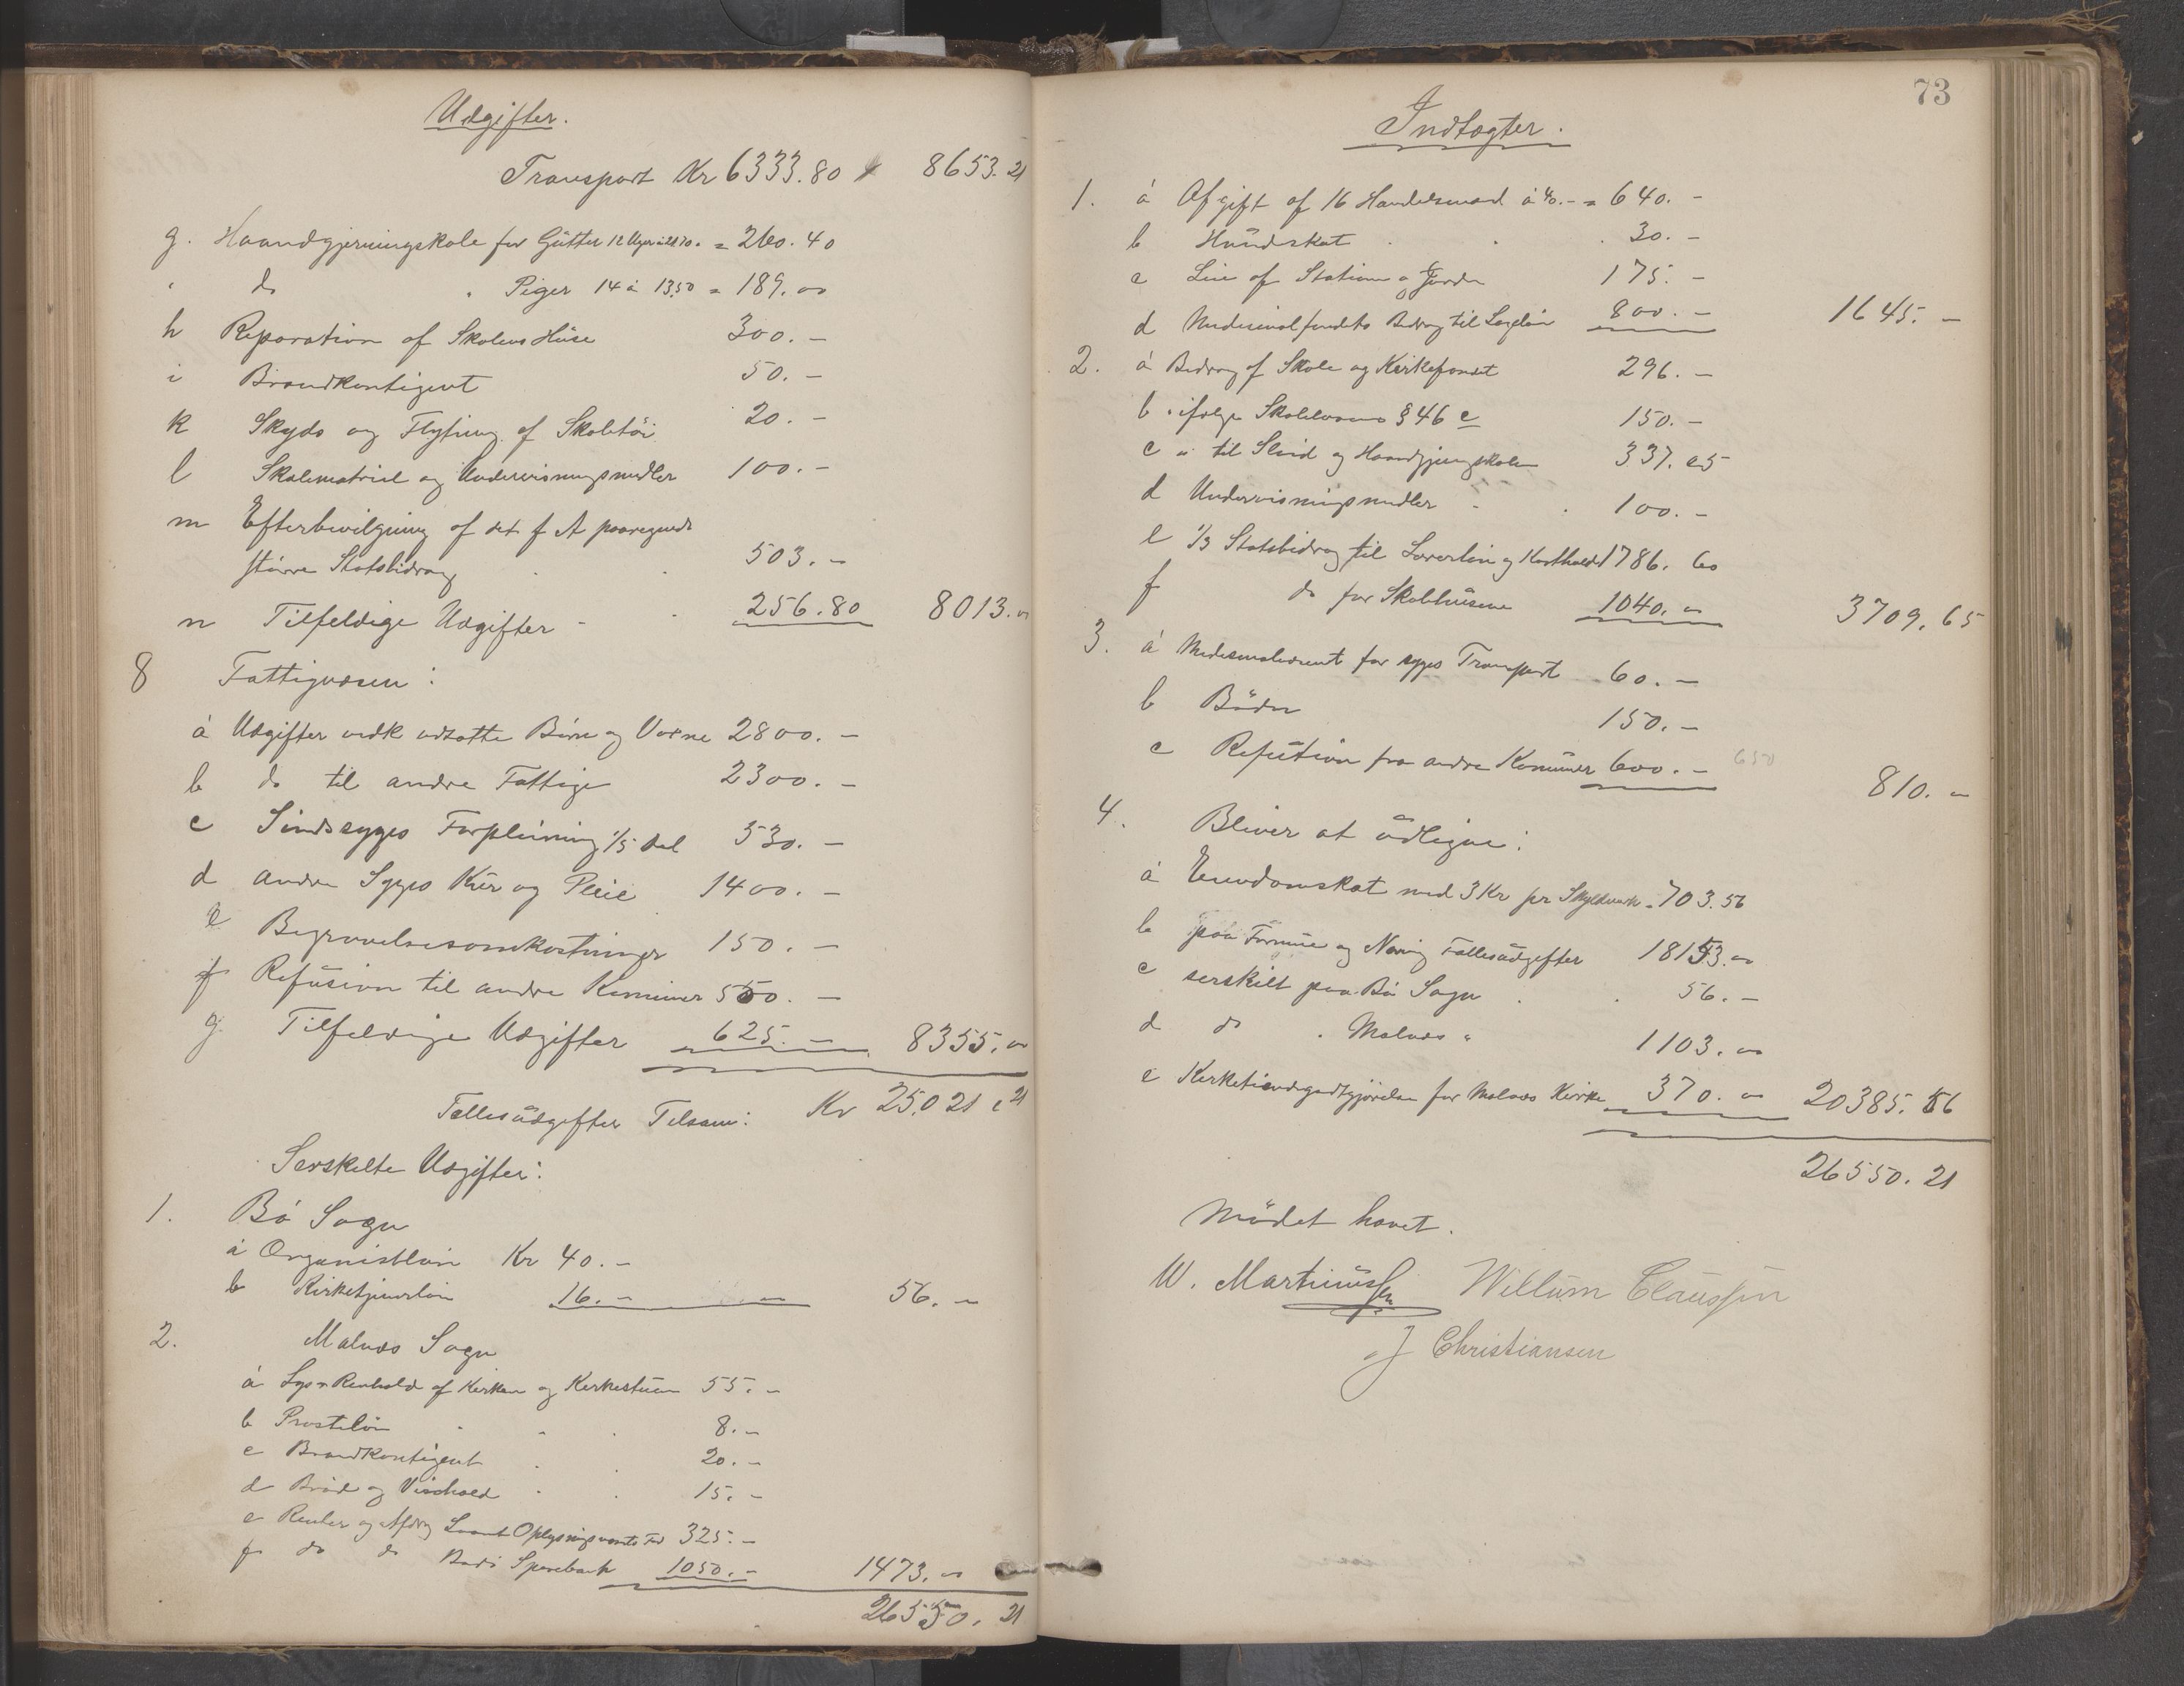 Udgifter.
Transport Kr 6333.80 8653.21
g. Haandgjerningskole for Gütter 12 Uger à 21.70. = 260.40
" do " Piger 14 à 13.50 = 189.00
h Reparation af Skolens Hüse 300.-
i Brandkontigent 50.-
k Skyds og Flytning af Skoletöi 20.-
l Skolemateriel og Undervisningsmidler 100.-
m Efterbevilgning af det f A paaregnede
större Statsbidrag 503.-
n Tilfeldige Udgifter - 256.80 8013.00
8 Fattigvæsen:
a Udgifter vedk udsatte Börn og Voxne 2800.-
b do til andre Fattige 2300.-
c Sindssyges Forpleining 1/5 del 530.-
d andre Syges Kür og Pleie 1400.-
e Begravelsesomkostninger 150.-
f Refüsion til andre Komüner 550.-
g. Tilfeldige Udgifter 625.- 8355.00
Fællesüdgifter Tilsam: Kr 25021.21
Serskilte Udgifter:
1. Bö Sogn
a Organistlön Kr 40.-
b Kirketjenerlön 16.- 56.-
2. Malnæs Sogn
a Lys & Renhold af Kirken og Kirkestüen 55.-
b Prostelön 8.-
c Brandkontigent 20.-
d Bröd og Vinhold 15.-
e Renter og Afdrag Laant Oplysningsvæsts Fd 325.-
f do do Bodö Sparebank 1050.- 1473.00
26550.21
73
Indtægter.
1. a Afgift af 16 Handelsmænd à 40.- = 640.-
b Hündskat 30.-
c Leie af Stationen og Jorden 175.-
d Medicinalfondets Bidrag til Lægelön 800.- 1645.-
2. a Bidrag af Skole og Kirkefondet 296.-
b " ifölge Skoleloven § 46 c 150.-
c " til Slöid og Haandgjerningskolen 337.05
d Undervisningsmidler 100.-
e 1/3 Statsbidrag til Lærerlön og Kosthold 1786.60
f do for Skolehüsene 1040.00 3709.65
3. a Medicinalvæsenet for syges Transport 60.-
b Böder 150.-
c Refütion fra andre Komüner 600.- 650 810.00
4. Bliver at üdligne:
a Eiendomskat med 3 Kr pr Skyldmark = 703.56
b paa Formüe og Næring Fællesüdgifter 18153.00
c serskilt paa Bö Sogn 56.-
d do " Malnæs " 1103.00
e Kirketiendegodtgjörelse for Malnæs Kirke 370.00 20385.56
26550.21
Mödet hævet.
W. Martinüssen Willüm Claüssen
J Christiansen